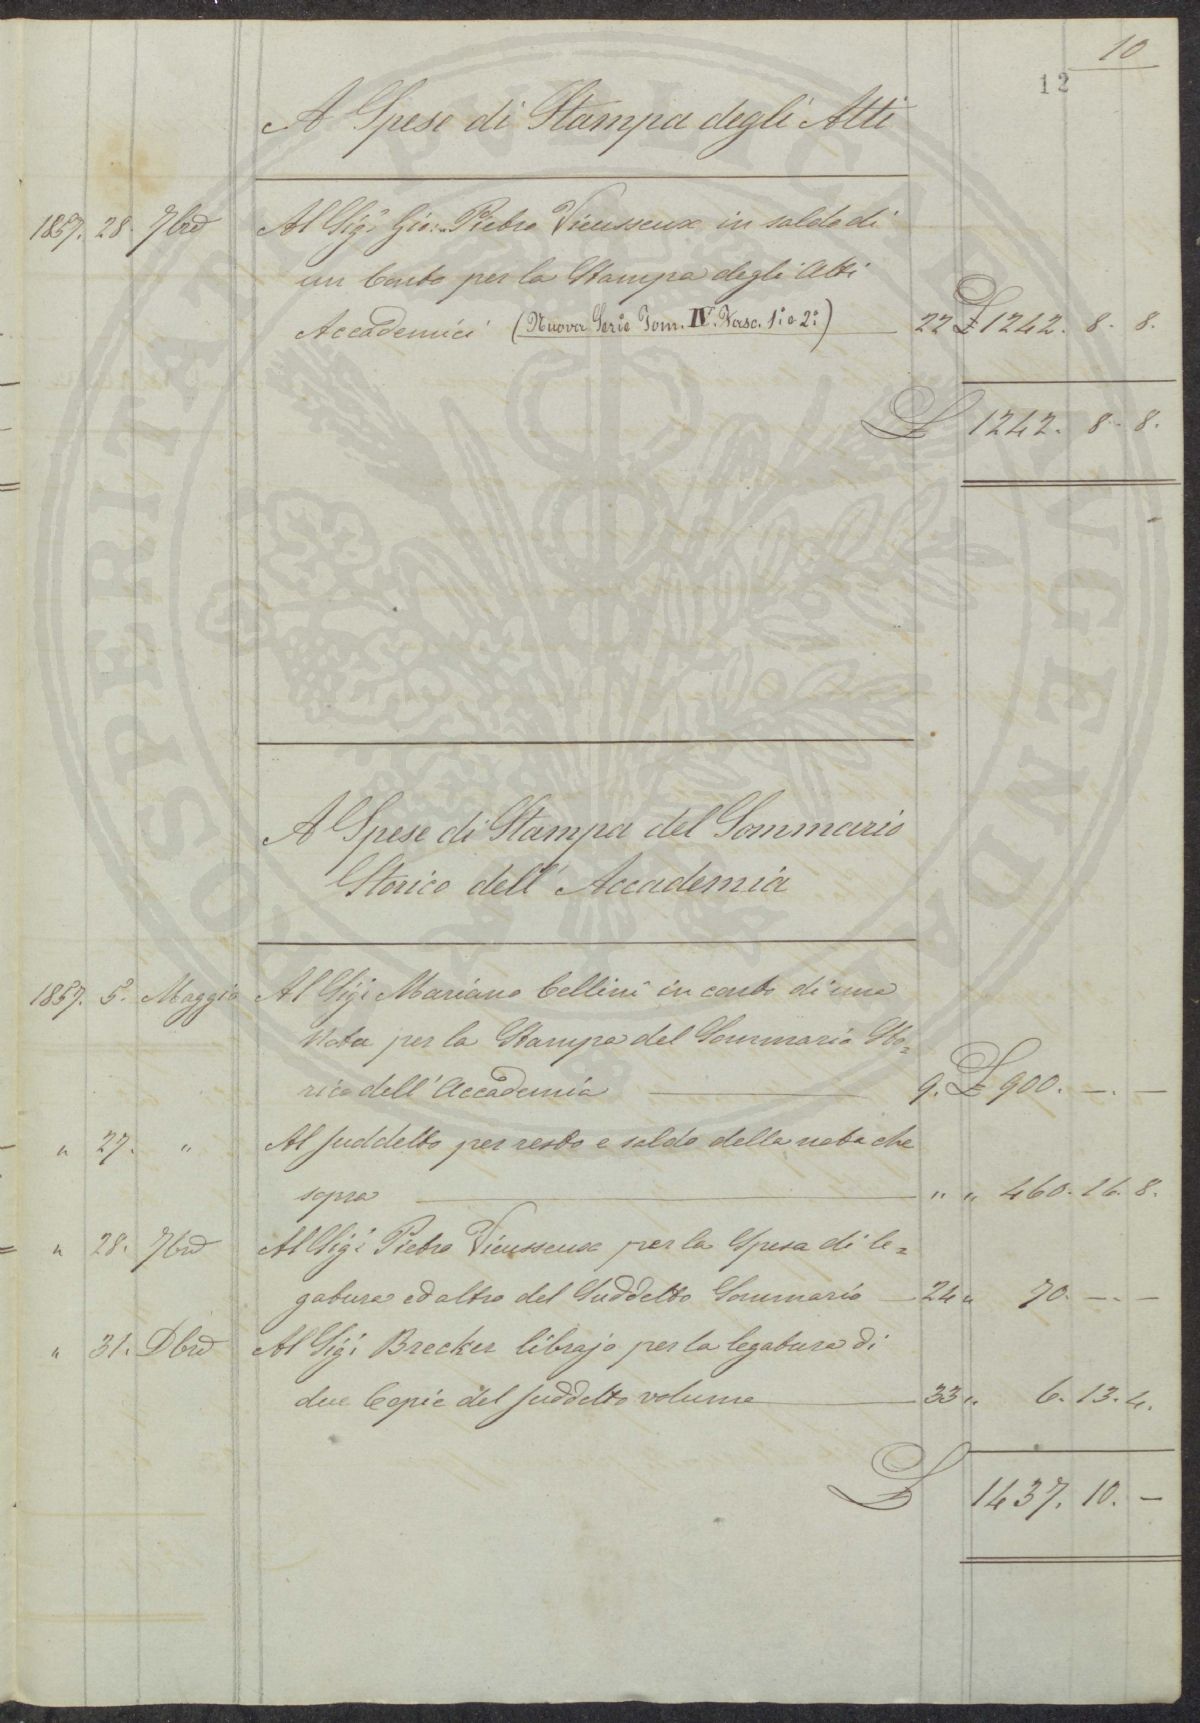 10
12
A Spese di Stampa degli Atti
1857. 28. 7bre Al Sigr Gio: Pietro Vieusseux in saldo di
un Conto per la Stampa degli Atti
Accademici (Nuova Serie Tom. IV. Fasc. 1.° e 2.°) 22 £ 1242. 8. 8.
£ 1242. 8. 8.
A Spese di Stampa del Sommario
Storico dell' Accademia
1857. 5. Maggio Al Sigr Mariano Cellini in conto di una
Nota per la Stampa del Sommario Sto=
rico dell' Accademia 9. £ 900. —. —
" 27. " Al suddetto per resto e saldo della nota che
sopra " " 460. 16. 8.
" 28. 7bre Al Sigr Pietro Vieusseux per la Spesa di le=
gatura ed altro del Suddetto Sommario 24 " 70. —. —
" 31. Dbre Al Sigr Brecker librajo per la legatura di
due Copie del suddetto volume 33 " 6. 13. 4.
£ 1437. 10. —
PROSPERITATI PUBLICAE AUGENDAE